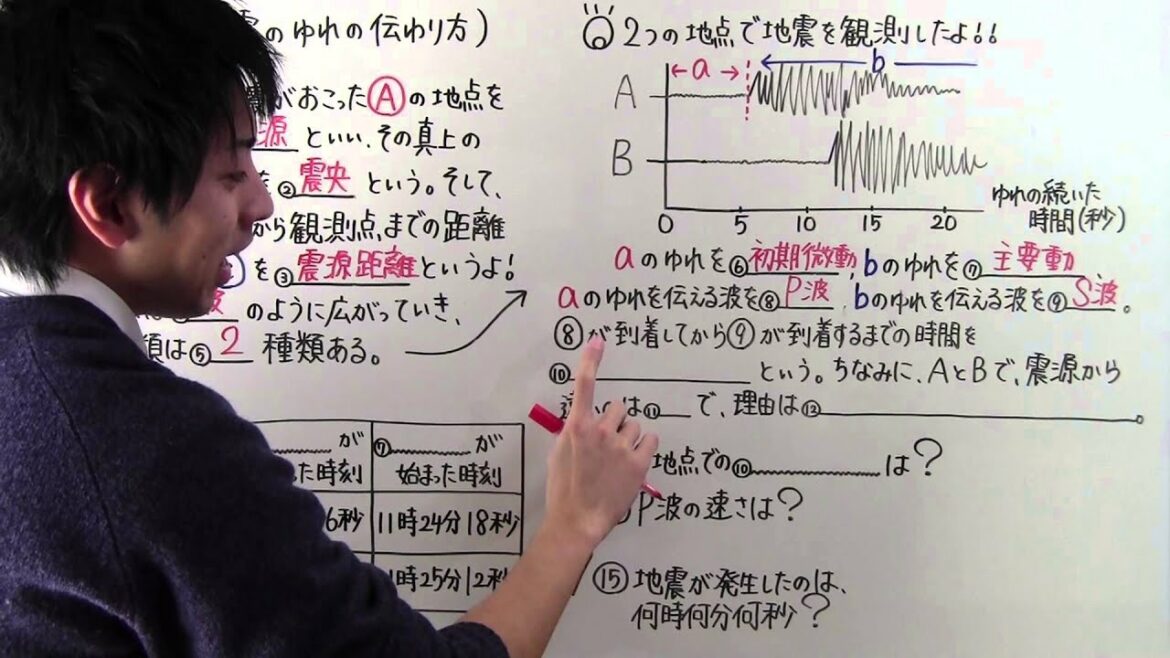 のゆれの伝わり方)
がおこったⒶの地点を
源といい、その真上の
②震央という。そして、
から観測点までの距離
を③震源距離というよ!
のように広がっていき、
類は⑤2種類ある。
が
⑦が
た時刻
始まった時刻
6秒
11時24分18秒
時25分12秒
2つの地点で地震を観測したよ!!
a
b
A
B
0 5 10 15 20
ゆれの続いた
時間(秒)
aのゆれを⑥初期微動,bのゆれを⑦主要動
aのゆれを伝える波を⑧P波.bのゆれを伝える波を⑨S波。
⑧が到着してから⑨が到着するまでの時間を
⑩という。ちなみに、AとBで、震源から
は⑪で、理由は⑫
地点での⑩は?
P波の速さは?
⑮地震が発生したのは、
何時何分何秒?